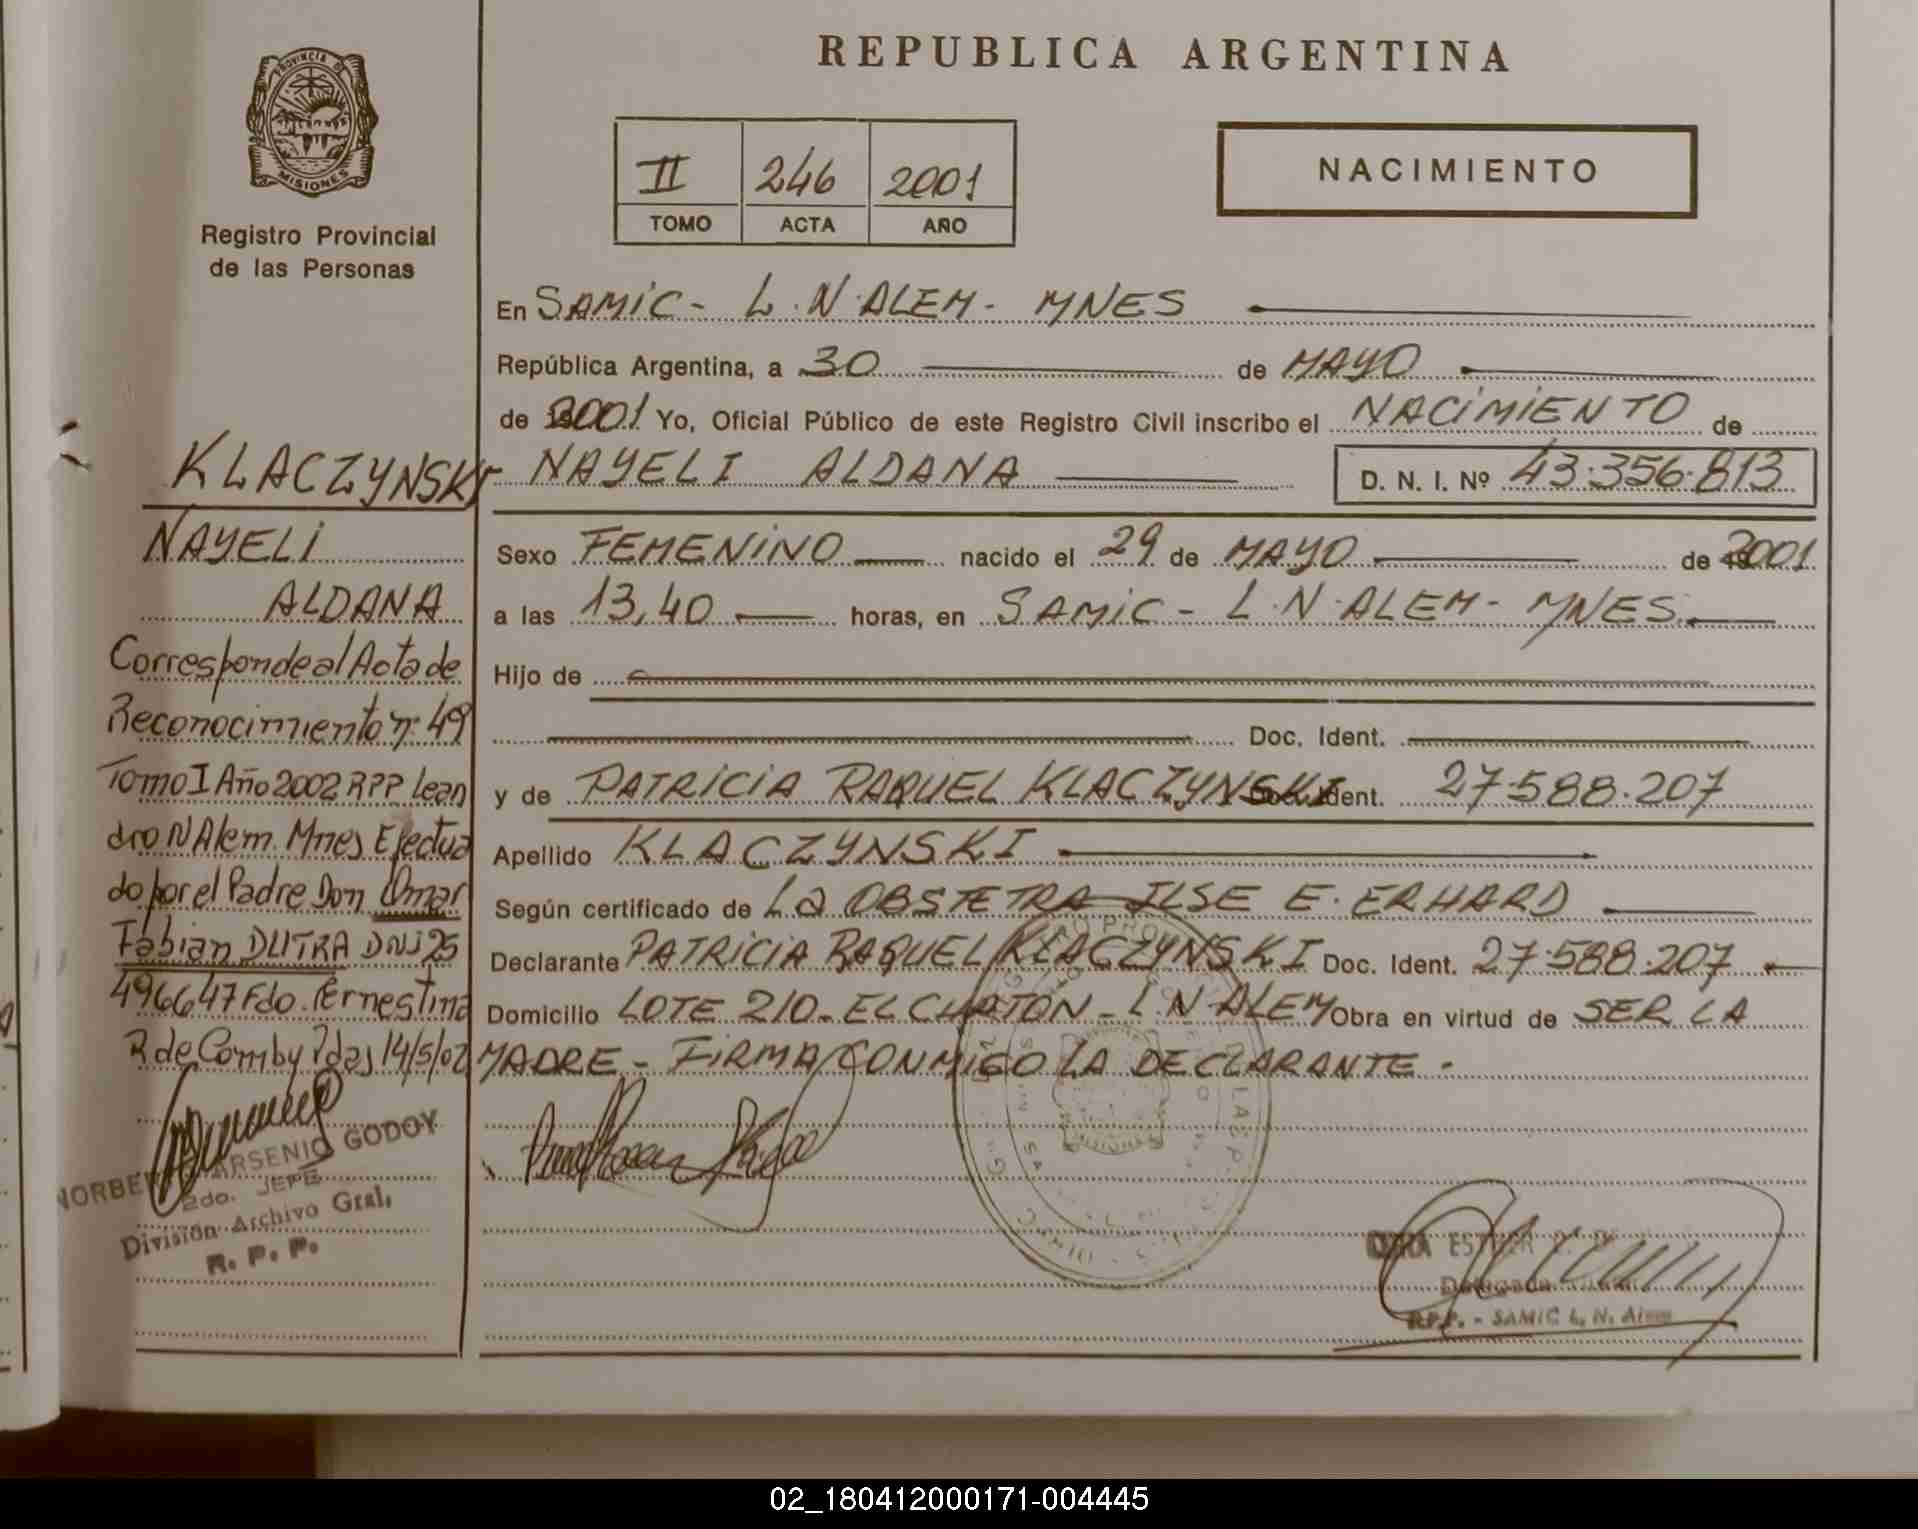 REPUBLICA ARGENTINA
PROVINCIA DE
MISIONES
Registro Provincial
de las Personas
II 246 2001
TOMO ACTA AÑO
NACIMIENTO
En SAMIC - L.N. ALEM - MNES
República Argentina, a 30 de MAYO
de 2001 Yo, Oficial Público de este Registro Civil inscribo el NACIMIENTO de
NAYELI ALDANA D. N. I. Nº 43.356.813
Sexo FEMENINO nacido el 29 de MAYO de 2001
a las 13,40 horas, en SAMIC - L.N. ALEM - MNES.
Hijo de
Doc. Ident.
y de PATRICIA RAQUEL KLACZYNSKI Doc. Ident. 27.588.207
Apellido KLACZYNSKI
Según certificado de La OBSTETRA ILSE E. ERHARD
Declarante PATRICIA RAQUEL KLACZYNSKI Doc. Ident. 27.588.207
Domicilio LOTE 210 - EL CHATON - L.N ALEM Obra en virtud de SER LA
MADRE - FIRMA CONMIGO LA DECLARANTE -
KLACZYNSKI
NAYELI
ALDANA
Corresponde al Acta de
Reconocimiento nº 49
Tomo I Año 2002 RPP Lean
dro N Alem. Mnes Efectua
do por el Padre Don Omar
Fabian DUTRA DNI 25
496647 Fdo. Ernestina
R de Comby Pdas 14/5/02
ARSENIO GODOY
2do. JEFE
División Archivo Gral.
R. P. P.
ESTHER
Delegada
R.P.P. - SAMIC L. N. Alem
02_180412000171-004445